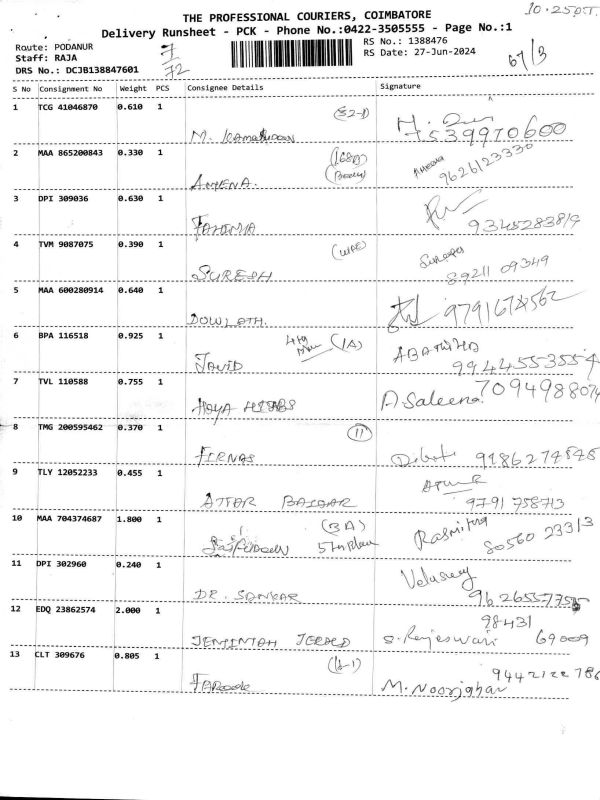 THE PROFESSIONAL COURIERS, COIMBATORE
Delivery Runsheet - PCK - Phone No.:0422-3505555 - Page No.:1
Route: PODANUR
RS No.: 1388476
Staff: RAJA
RS Date: 27-Jun-2024
67/3
DRS No.: DCJB138847601
72
S No Consignment No Weight PCS Consignee Details Signature
1 TCG 41046870 0.610 1
7539970600
2 MAA 865200843 0.330 1 (168A)
ATHENA. 9626123330
3 DPI 309036 0.630 1
FAHIMA 9345283819
4 TVM 9087075 0.390 1
SURESH 89211 09349
5 MAA 600280914 0.640 1
DOWLATH. 9791674562
6 BPA 116518 0.925 1 (1A)
JAVID 9944553554
7 TVL 110588 0.755 1 7094988074
A Saleena
8 TMG 200595462 0.370 1 11
FIRNAS 9186274848
9 TLY 12052233 0.455 1
ATTAR BAZAAR 9791758713
10 MAA 704374687 1.800 1 (3A)
80560 23313
11 DPI 302960 0.240 1
DR. SANKAR
12 EDQ 23862574 2.000 1 98431
S. Rajeswari 69009
13 CLT 309676 0.805 1 9442122786
M. Noorjahan